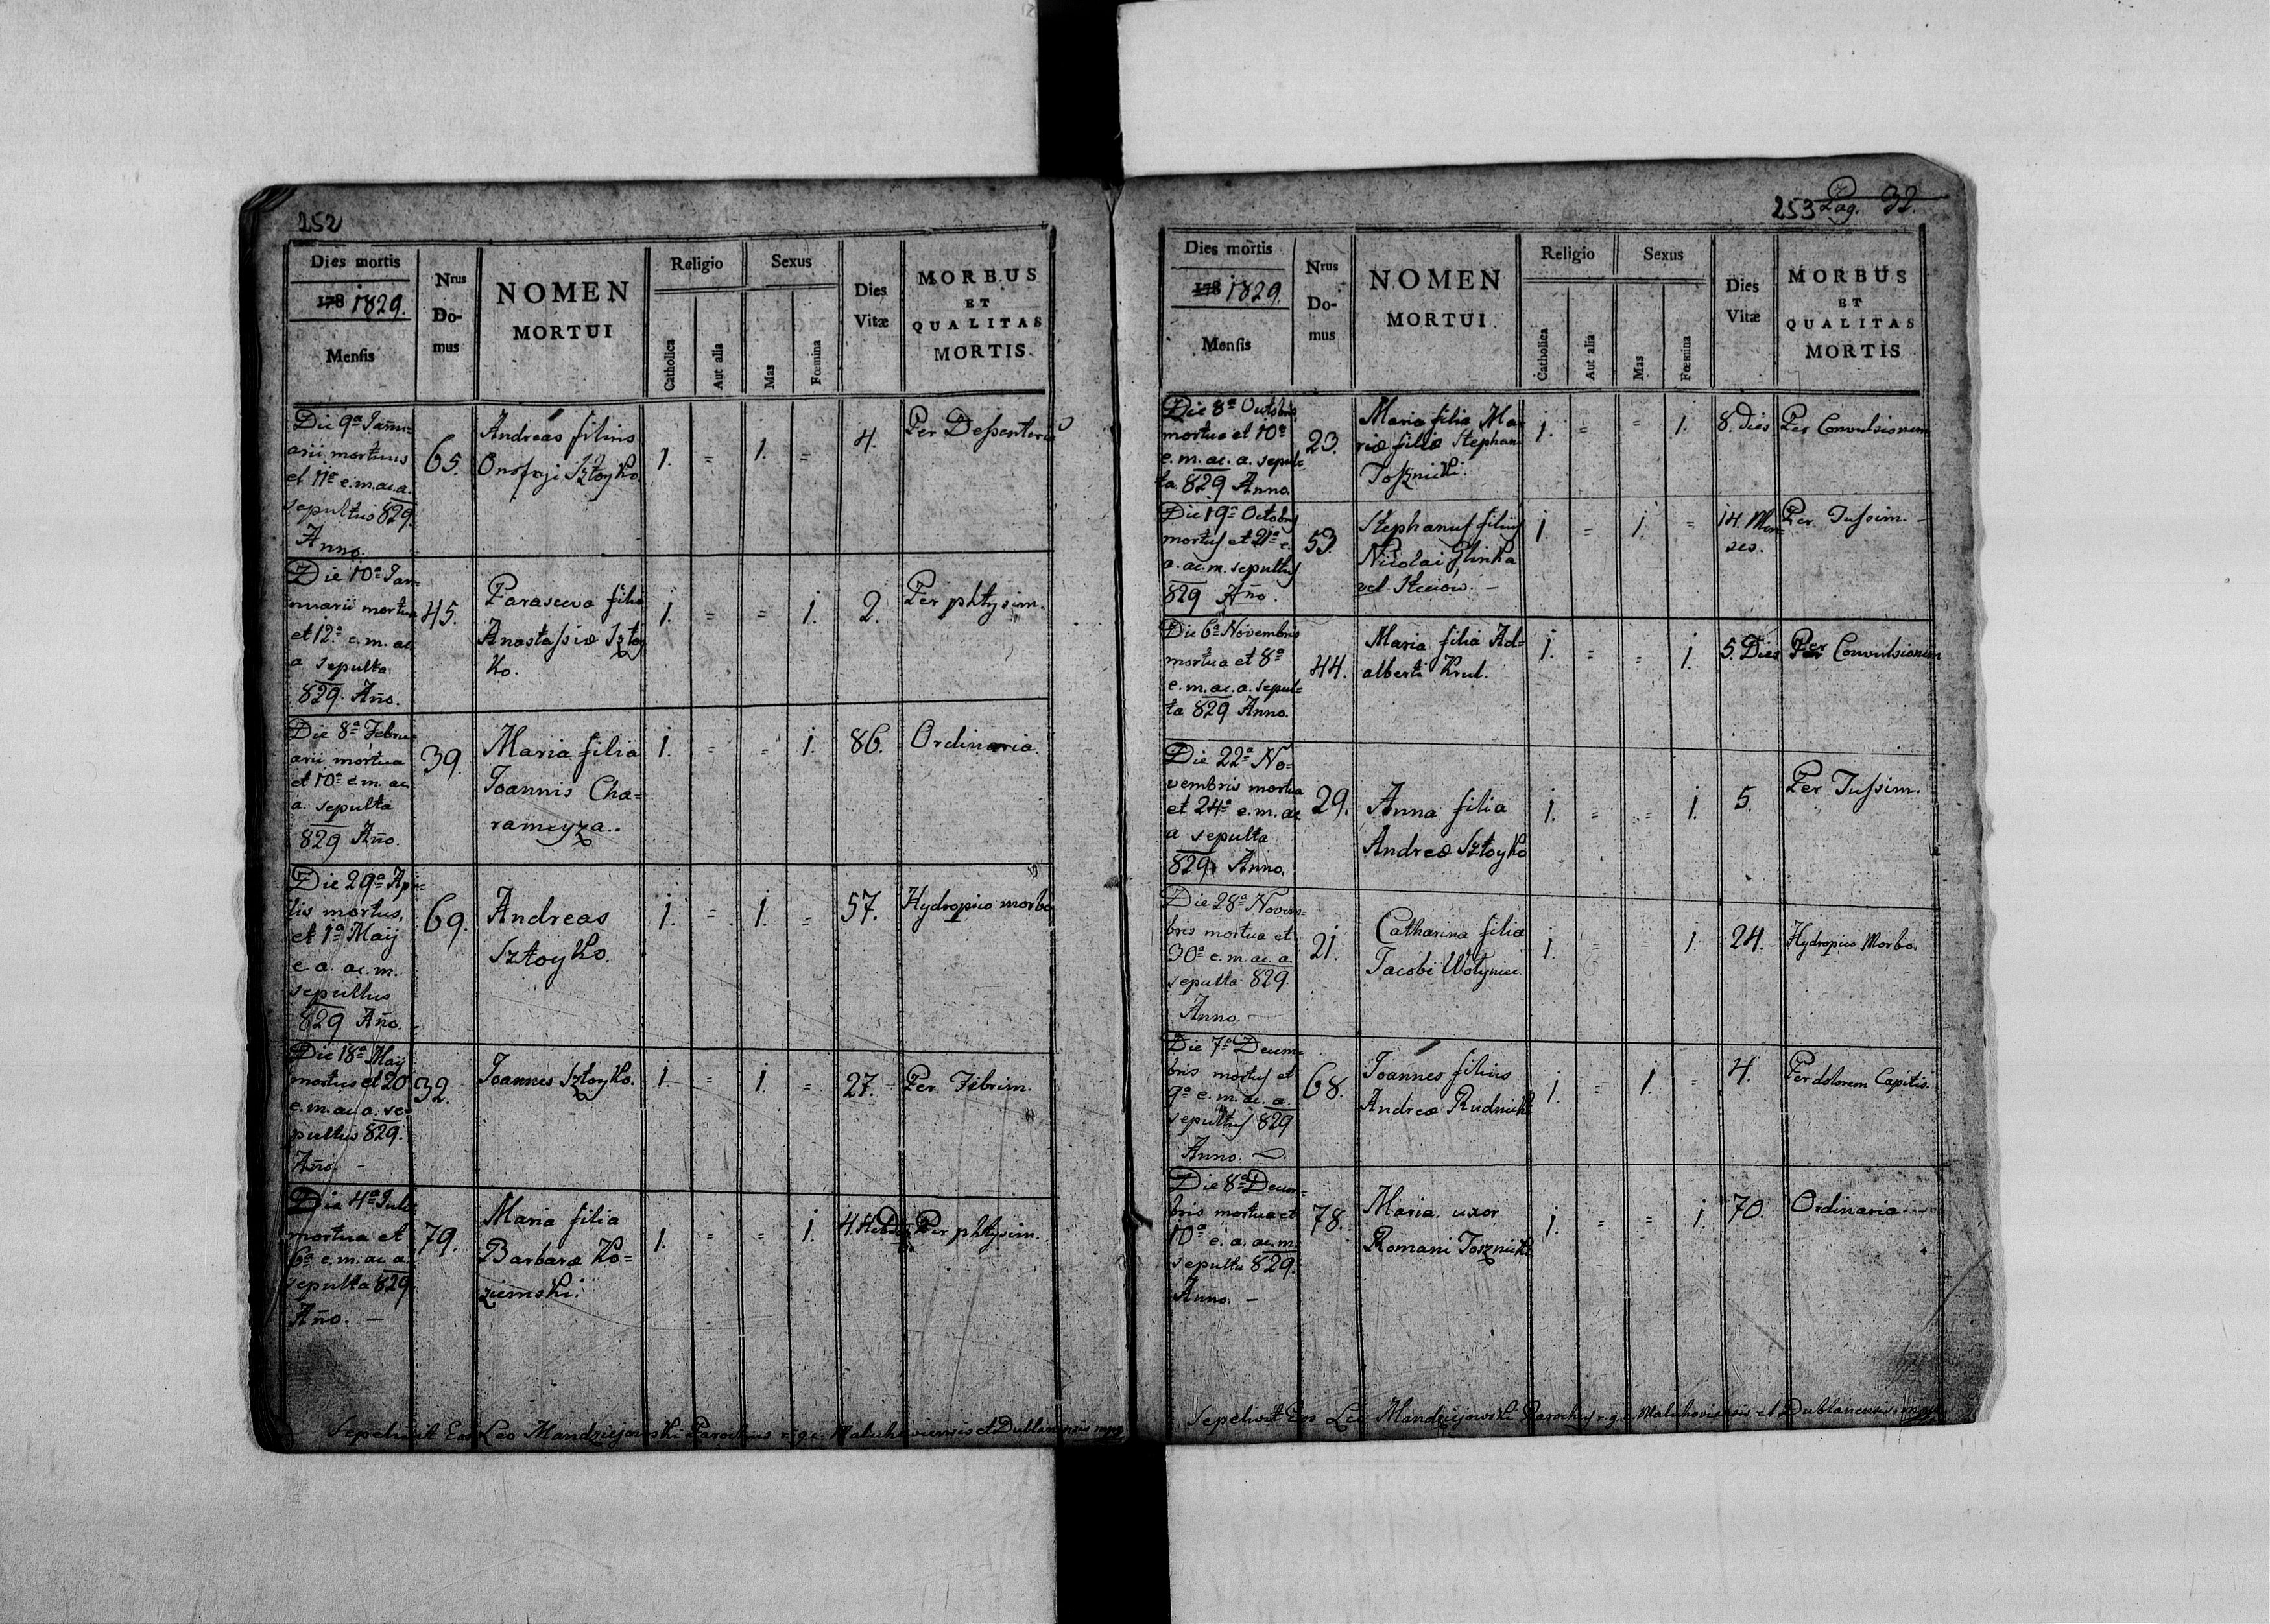 252
Dies mortis
178 1829.
Mensis
Nrus
Do-
mus
NOMEN
MORTUI
Religio
Catholica
Aut alia
Sexus
Mas
Fœmina
Dies
Vitæ
MORBUS
ET
QUALITAS
MORTIS
Die 9a Janu=
arii mortuus
et 11a e.m.ac.a.
sepultus 829.
Anno.
65.
Andreas filius
Onofryi Sztoyko.
1. = 1. =
4.
Per Dessenteria
Die 10a Jan=
nuarii mortua
et 12a e.m. ac
a sepulta
829. Año.
45.
Parasceva filia
Anastassiæ Szto
ko.
1. = = 1.
2.
Per phtysim.
Die 8a Febru=
arii mortua
et 10a e.m. ac
a. sepulta
829 Año.
39.
Maria filia
Joannis Cha=
rameyza.
1. = = 1.
86.
Ordinaria.
Die 29a Ap=
lis mortus,
et 1a Maij
e a. ac. m.
sepultus
829 Año.
69.
Andreas
Sztoyko.
1. = 1. =
57.
Hydropico morbo
Die 18a Maij
mortus et 20
e.m.ac a. se
pultus 829.
Año. -
32.
Joannes Sztoyko.
1. = 1. =
27.
Per Febrim.
Die 4a Juli
mortua et
6a e.m. ac a.
sepulta 829.
Año. —
79.
Maria filia
Barbaræ Ko=
ziemski.
1. = = 1.
Per phtysim.
Sepelivit Eos Leo Mandziejowski Parochus r.g.c. Maluhoviensis et Dublanensis mpp
253 Pag. 32.
Dies mortis
178 1829.
Mensis
Nrus
Do-
mus
NOMEN
MORTUI
Religio
Catholica
Aut alia
Sexus
Mas
Fœmina
Dies
Vitæ
MORBUS
ET
QUALITAS
MORTIS
Die 8a Octobris
mortua et 10a
e.m. ac. a. sepul=
ta 829 Anno.
23.
Maria filia Ma
riæ filiæ Stephani
Toszniki.
1. = = 1.
8. Dies
Per Convulsionem
Die 19a Octobris
mortus et 21a e.
a. ac. m. sepultus
829 Año.
53.
Stephanus filius
Nicolai Glinka
vel Steciow. —
1. = 1. =
14. Men=
ses.
Per Tussim. -
Die 6a Novembris
mortua et 8a
e.m. ac. a. sepul=
ta 829 Anno.
44.
Maria filia Ad=
alberti Krul.
1. = = 1.
5. Dies
Per Convulsionem
Die 22a No=
vembris mortua
et 24a e.m. ac
a sepulta
829 Anno.
29.
Anna filia
Andreæ Sztoyko
1. = = 1.
5.
Per Tussim.
Die 28a Novem=
bris mortua et
30a e.m. ac. a.
sepulta 829.
Anno. —
21.
Catharina filia
Jacobi Wołyniec
1. = = 1.
24.
Hydropico Morbo.
Die 7a Decem
bris mortus et
9a e.m. ac. a.
sepultus 829
Anno. —
68.
Joannes filius
Andreæ Rudnicki
1. = 1. =
4.
Per dolorem Capitis.
Die 8a Decem=
bris mortua et
10a e. a. ac. m.
sepulta 829.
Anno. —
78.
Maria uxor
Romani Toszniki
1. = = 1.
70.
Ordinaria —
Sepelivit Eos Leo Mandziejowski Parochus r.g.c. Maluhoviensis et Dublanensis mpp